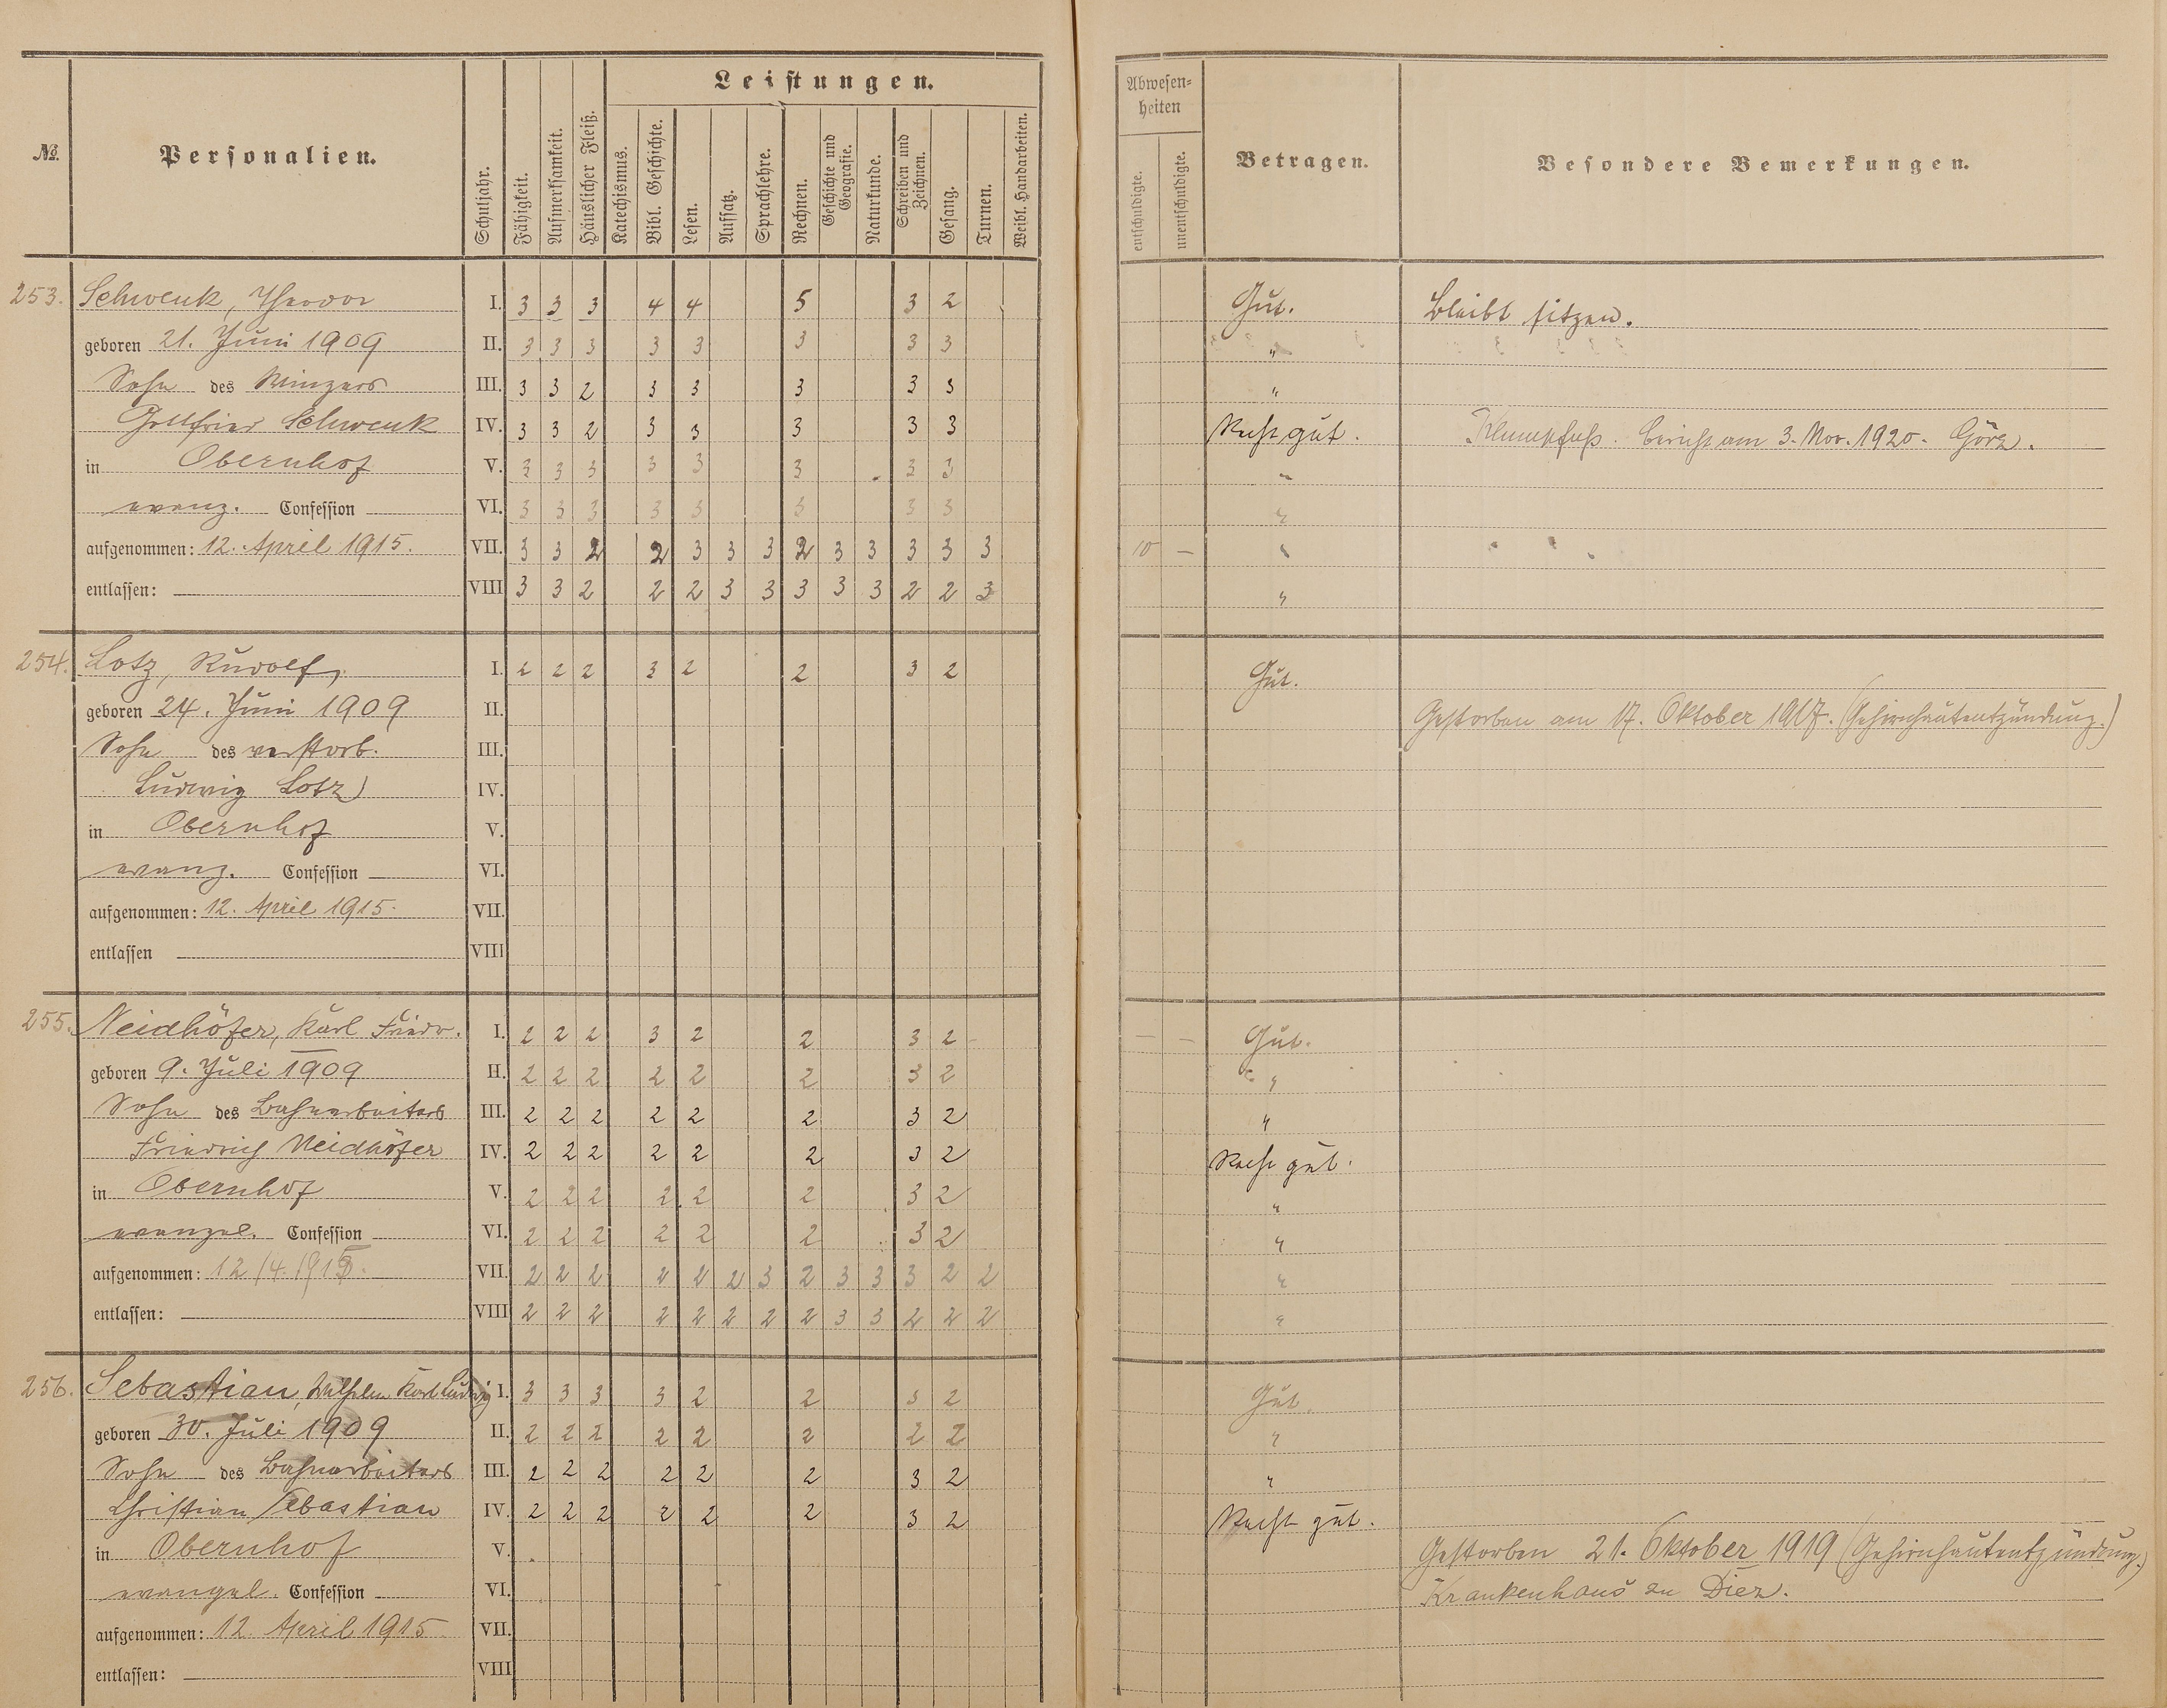 Leistungen.
Abwesenheiten
No. Personalien. Schuljahr. Fähigkeit. Aufmerksamkeit. Häuslicher Fleiß. Katechismus. Bibl. Geschichte. Lesen. Aufsatz. Sprachlehre. Rechnen. Geschichte und Geografie. Naturkunde. Schreiben und Zeichnen. Gesang. Turnen. Weibl. Handarbeiten. entschuldigte. unentschuldigte. Betragen. Besondere Bemerkungen.
253. Schwenk, Theodor I. 3 3 3 4 4 5 3 2 Gut. Bleibt sitzen.
geboren 21. Juni 1909 II. 3 3 3 3 3 3 3 3 "
Sohn des Winzers III. 3 3 2 3 3 3 3 3 "
Gottfried Schwenk IV. 3 3 2 3 3 3 3 3 Recht gut. Klumpfuß. Bericht am 3. Nov. 1920. Görz.
in Obernhof V. 3 3 3 3 3 3 3 3 "
evang. Confession VI. 3 3 3 3 3 3 3 3 "
aufgenommen: 12. April 1915. VII. 3 3 2 2 3 3 3 2 3 3 3 3 3 10 — "
entlassen: VIII 3 3 2 2 2 3 3 3 3 3 2 2 3 "
254. Lotz, Rudolf, I. 2 2 2 3 2 2 3 2 Gut.
geboren 24. Juni 1909 II. Gestorben am 17. Oktober 1917. (Gehirnhautentzündung.)
Sohn des verstorb. III.
Ludwig Lotz IV.
in Obernhof V.
evang. Confession VI.
aufgenommen: 12. April 1915. VII.
entlassen VIII
255. Neidhöfer, Karl Friedr. I. 2 2 2 3 2 2 3 2 — — Gut.
geboren 9. Juli 1909 II. 2 2 2 2 2 2 3 2 "
Sohn des Bahnarbeiters III. 2 2 2 2 2 2 3 2 "
Friedrich Neidhöfer IV. 2 2 2 2 2 2 3 2 Recht gut.
in Obernhof V. 2 2 2 2 2 2 3 2 "
evangel. Confession VI. 2 2 2 2 2 2 3 2 "
aufgenommen: 12/4. 1915. VII. 2 2 2 2 2 2 3 2 3 3 3 2 2 "
entlassen: VIII 2 2 2 2 2 2 2 2 3 3 2 2 2 "
256. Sebastian, Wilhelm Karl Ludwig I. 3 3 3 3 2 2 3 2 Gut.
geboren 30. Juli 1909 II. 2 2 2 2 2 2 2 2 "
Sohn des Bahnarbeiters III. 2 2 2 2 2 2 3 2 "
Christian Sebastian IV. 2 2 2 2 2 2 3 2 Recht gut.
in Obernhof V. Gestorben 21. Oktober 1919 (Gehirnhautentzündung.)
evangel. Confession VI. Krankenhaus zu Diez.
aufgenommen: 12. April 1915 VII.
entlassen: VIII